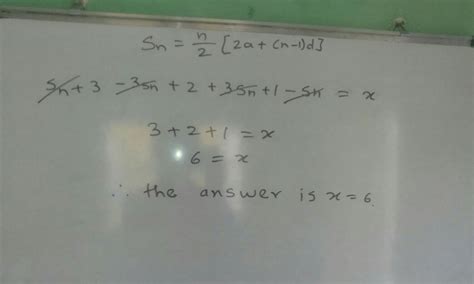 Sn = n/2 [2a + (n-1)d]
Sn + 3 - 3Sn + 2 + 3Sn + 1 - Sn = x
3 + 2 + 1 = x
6 = x
∴ the answer is x = 6.